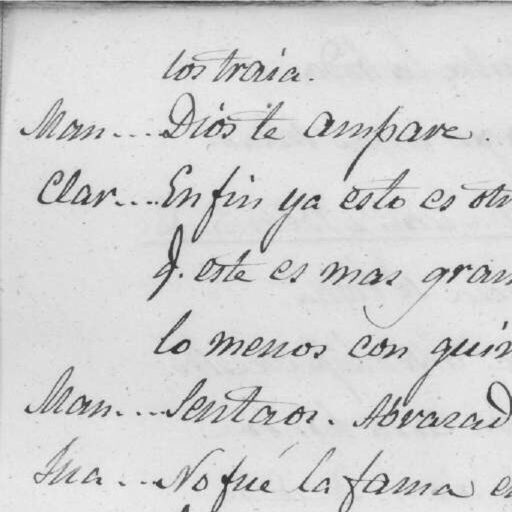 los traia.
Man... Dios te ampare
Clar... En fin ya esto es otr
Q. este es mas gran
lo menos con quin
Man... Sentaos. Abrazad
Jua... No fué la fama en